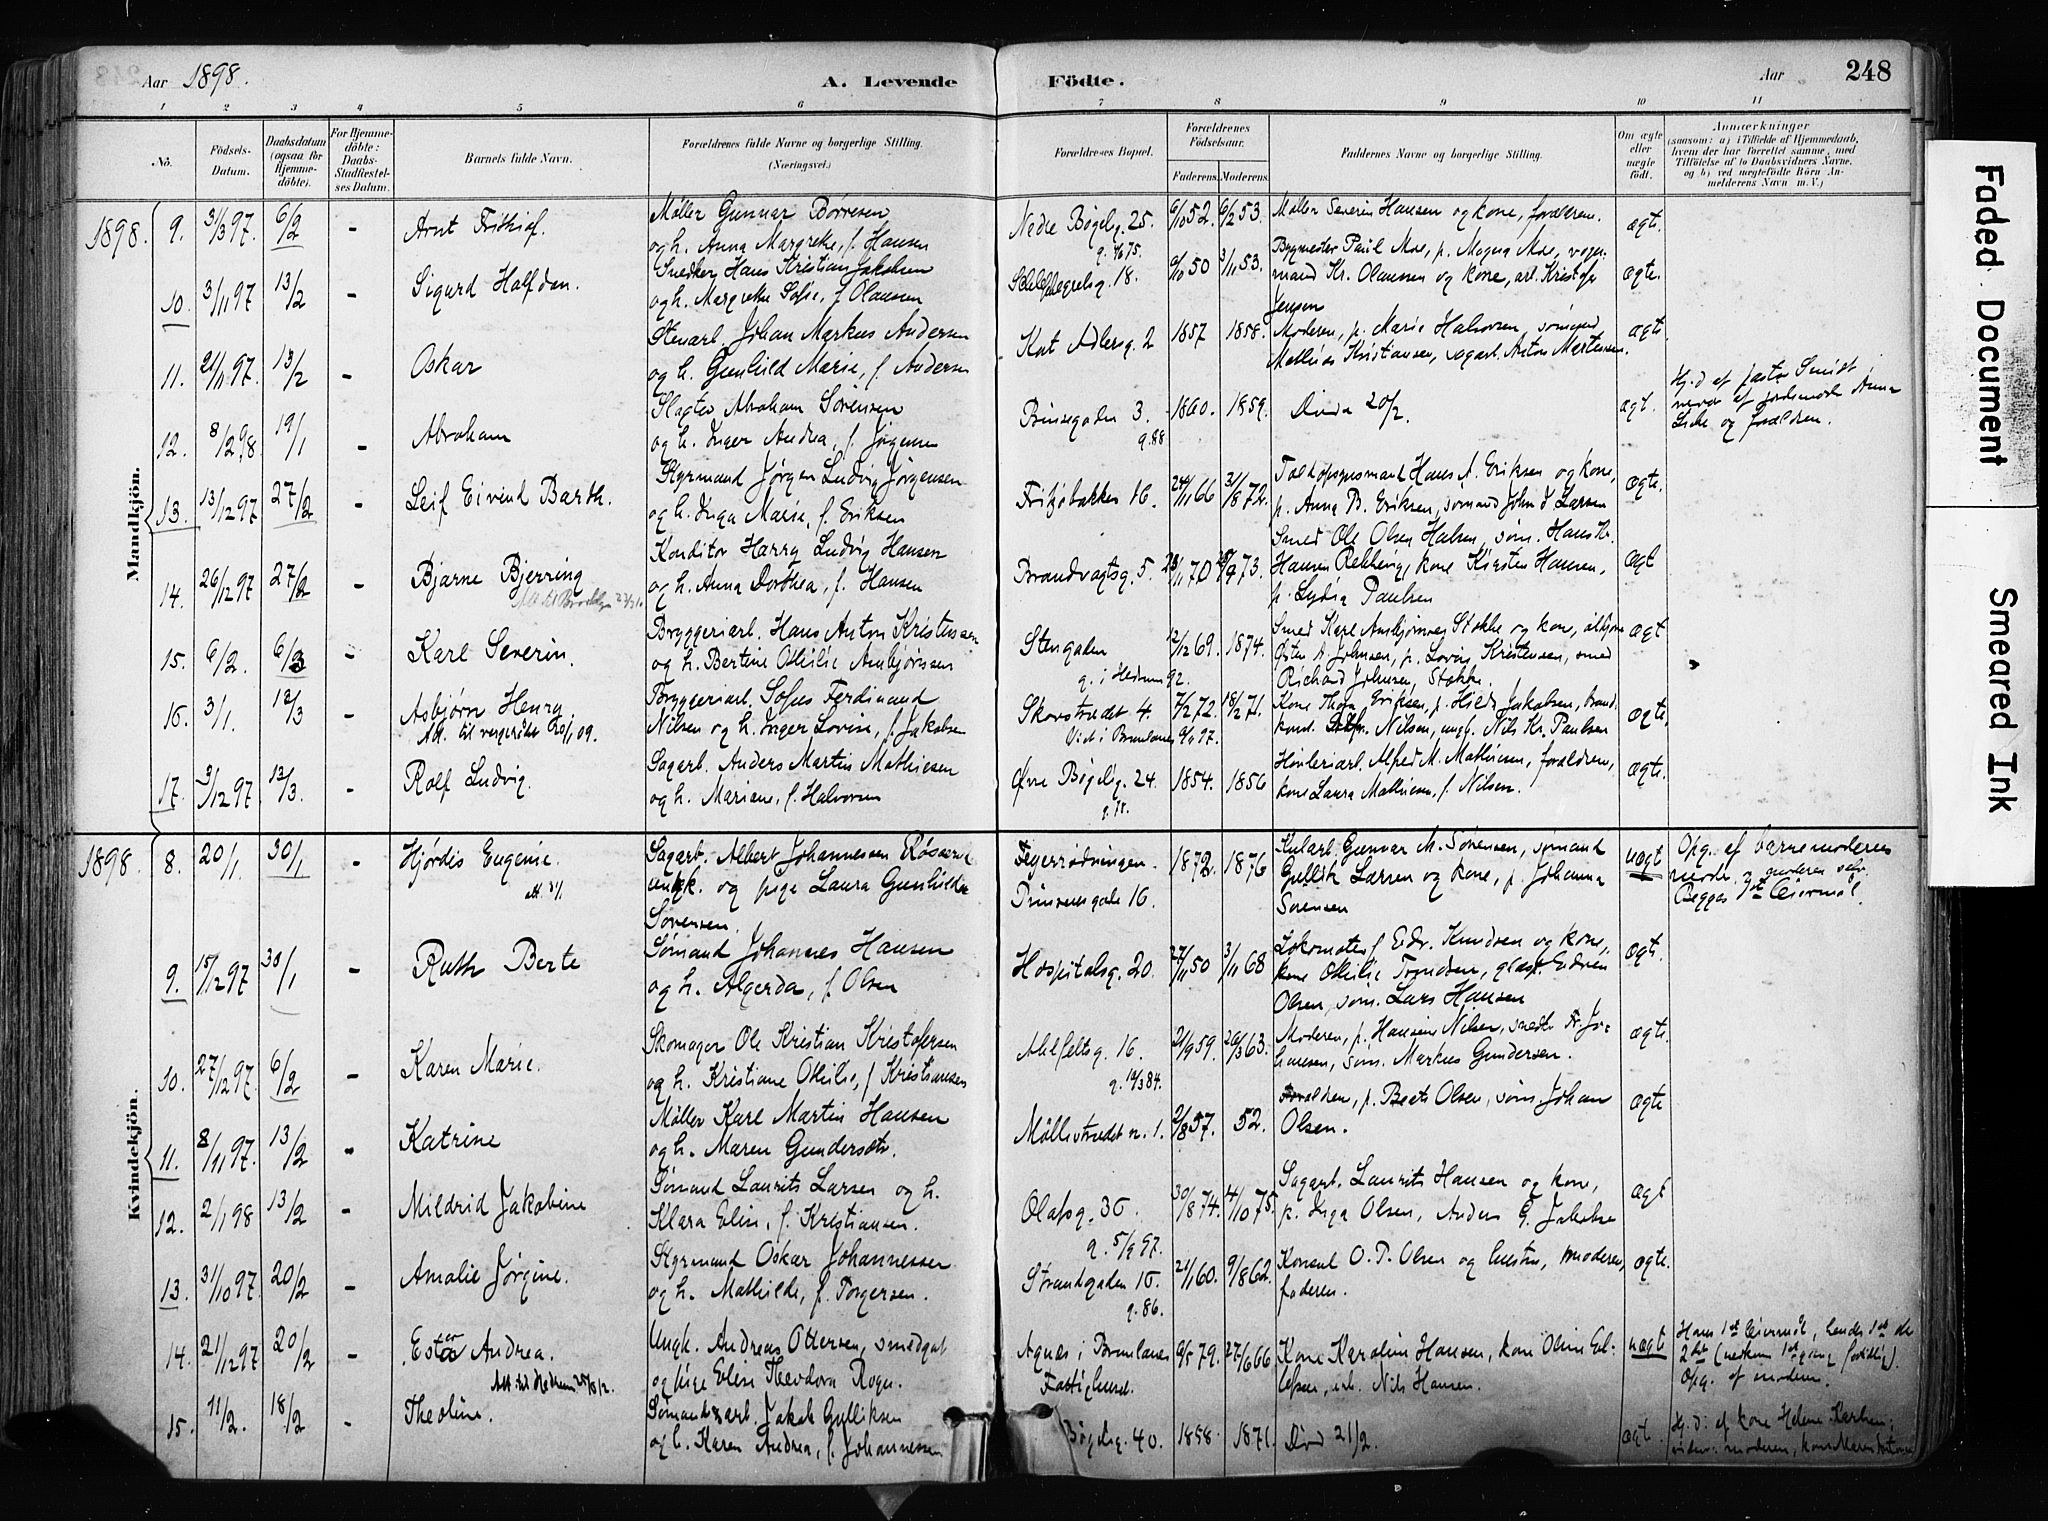 Aar 1898. A. Levende Födte. Aar 248
1 2 3 4 5 6 7 8 9 10 11
No. Födsels-Datum. Daabsdatum (ogsaa for Hjemmedöbte). For Hjemmedöbte: Daabs-Stadfæstelses Datum. Barnets fulde Navn. Forældrenes fulde Navne og borgerlige Stilling. (Næringsvei.) Forældrenes Bopæl. Forældrenes Födselsaar. Faderens. Moderens. Faddernes Navne og borgerlige Stilling. Om ægte eller uægte födt. Anmærkninger
(saasom: a) i Tilfælde af Hjemmedaab, hvem der har forrettet samme, med Tilföielse af to Daabsvidners Navne, og b) ved uægtefödte Börn Anmelderens Navn m. V.)
Mandkjön.
1898. 9. 31/3 97. 6/2 - Arnt Frithiof. Møller Gunnar Børresen
og h. Anna Margrethe, f. Hansen
Nedre Bøgelg. 25. 6/10 52. 6/2 53. Møller Severin Hansen og kone, forældrene. ægte.
10. 3/11 97 13/2 - Sigurd Halfdan. Snedker Hans Kristian Jakobsen
og h. Margrethe Sofie, f. Olaussen
18. 6/10 50 3/11 53. Bygmester Paul Moe, p. Magna Moe,
mand Kr. Olaussen og kone, arb. Kristofer
Jensen ægte.
11. 21/11 97. 13/2 - Oskar Stenarb. Johan Markus Andersen
og h. Gunhild Marie, f. Andersen
Kort Adlersg. 2 1857 1858. Moderen, p. Marie Halvorsen, sømand
Mathias Kristiansen, sagarb. Anton Martinsen. ægt.
12. 8/12 98 19/1 - Abraham Slagter Abraham Sörensen
og h. Inger Andrea, f. Jørgensen
Prinsegaden 3. g. 88 1860. 1859. Døde 20/2. ægt. Hj.d. af pastor Smidt
nærv. af jordemoder Anna
Lie og forældrene.
13. 13/12 97 27/2 - Leif Eivind Barth. Styrmand Jørgen Ludvig Jørgensen
og h. Inga Marie, f. Eriksen
Fritzøbakken 16. 24/11 66 31/8 72. Toldopsynsmand Hans A. Eriksen og kone,
p. Anna B. Eriksen, sømand John J. Larsen ægte.
14. 26/12 97 27/2 - Bjarne Bjerring Konditor Harry Ludvig Hansen
og h. Anna Dorthea, f. Hansen
Brandvagtsg. 5. 70 73. Smed Ole Olsen Halsen, søm. Hans Kr.
Hansen Rekkevig, kone Kirsten Hansen,
p. Lydia Paulsen ægt
15. 6/2. 6/3 - Karl Severin. Bryggeriarb. Hans Anton Kristensen
og h. Bertine Othilie Asbjørnsen
Stengaden g. i Hedrum 92. 12/12 69. 1874. Smed Karl Asbjørnsen Stokke og kone,
A. Johnsen, p. Lovise Kristensen, smed
Richard Johnsen, Stokke. ægt
16. 3/1. 13/3 - Asbjørn Henry Bryggeriarb. Sofus Ferdinand
Att. til vergerådet 20/1 09. Nilsen og h. Inger Lovise, f. Jakobsen
Skovstrædet 4. 7/2 72. 18/2 71. Kone Thora Eriksen, p. Hilda Jakobsen,
Nilsen, ungk. Nils Kr. Paulsen ægte.
17. 3/12 97 13/3. - Rolf Ludvig. Sagarb. Anders Martin Mathiesen
og h. Mariane, f. Halvorsen
Øvre Bøgelg. 24. g. 78. 1854. 1856 Høvleriarb. Alfred M. Mathiesen, forældrene,
kone Laura Mathiesen, f. Nilsen. ægte.
Kvindekjön.
1898 8. 20/1. 30/1 - Hjørdis Eugenie. Sagarb. Albert Johannessen
ungk. og pige Laura Gunhilda
Sørensen.
Prinsensgade 16. 1872. 1876 Kularb. Gunnar M. Sørensen, sømand
Gullik Larsen og kone, p. Johanna
Sørensen uægt Opg. af barnemoderens
moder, moderen selv.
Begges 1st Leiermål.
9. 15/12 97 30/1 - Ruth Berte Sømand Johannes Hansen
og h. Algerda, f. Olsen
Hospitalsg. 20. 27/11 50 3/11 68 Lokomotivf. Edv. Knudsen og kone,
kone Othilie Trondsen,
Olsen, søm. Lars Hansen ægt.
10. 27/12 97 6/2 - Karen Marie. Skomager Ole Kristian Kristofersen
og h. Kristiane Othilie, f. Kristiansen
Ahlefeltsg. 16. 21/9 59. 26/3 63. Moderen, p. Hansine Nilsen, snedk. Fr. Johansen, søm. Markus Gundersen. ægte.
11. 8/11 97. 13/2 - Katrine Møller Karl Martin Hansen
og h. Maren Gundersdtr.
Møllestrædet n. 1. 2/8 57. 52. Forældrene, p. Berte Olsen, søm. Johan
Olsen. ægte
12. 2/1 98 13/2 - Mildrid Jakobine Sømand Laurits Larsen og h.
Klara Elin, f. Kristiansen.
Olafsg. 36. g. 5/9 97. 30/8 74. 4/10 75. Sagarb. Laurits Hansen og kone,
p. Inga Olsen, Anders G. Jakobsen ægt
13. 31/10 97. 20/2 - Amalie Jørgine. Styrmand Oskar Johannessen
og h. Mathilde, f. Torgersen.
Strandgaden 16. g. 86. 21/1 60. 9/8 62. Konsul O. P. Olsen og hustru, moderen,
faderen. ægte.
14. 21/12 97 20/2 - Ester Andrea. Ungk. Andreas Ottersen, smedgut
Att. til Hedrum og pige Elise Theodora
Agnæs i Brunlanes
Fattighuset. 6/5 79. 27/6 66 Kone Karoline Hansen, kone Oline
Nils Hansen. uægt Hans 1st Leiermål, hendes
Opg. af moderen.
15. 11/2. 18/2 - Theoline. Sømand & arb. Jakob Gulliksen
og h. Karen Andrea, f. Johannessen
Bøgelg. 40. 1858. 1871. Død 21/2. ægt. Hj.d.: af kone Helene Karlsen;
vidner: moderen, kone Maren
Faded Document
Smeared Ink